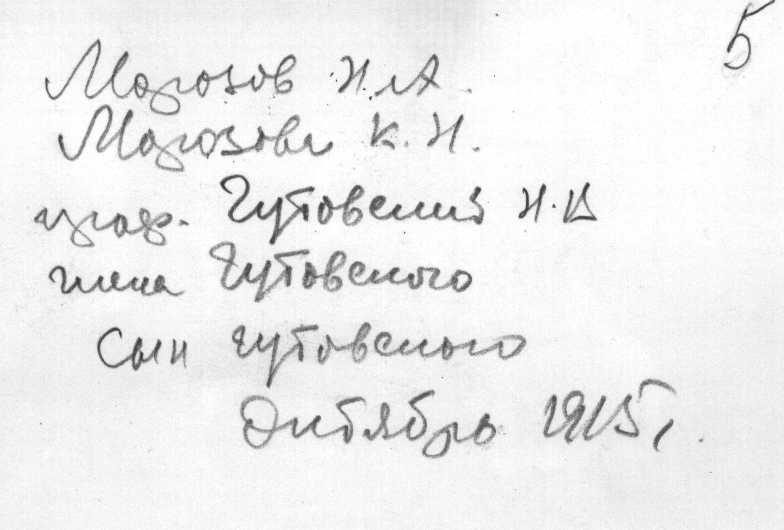 5
Морозов Н.А.
Морозова К.Н.
проф. Гутовский Н.В
жена Гутовского
сын Гутовского
Октябрь 1915 г.